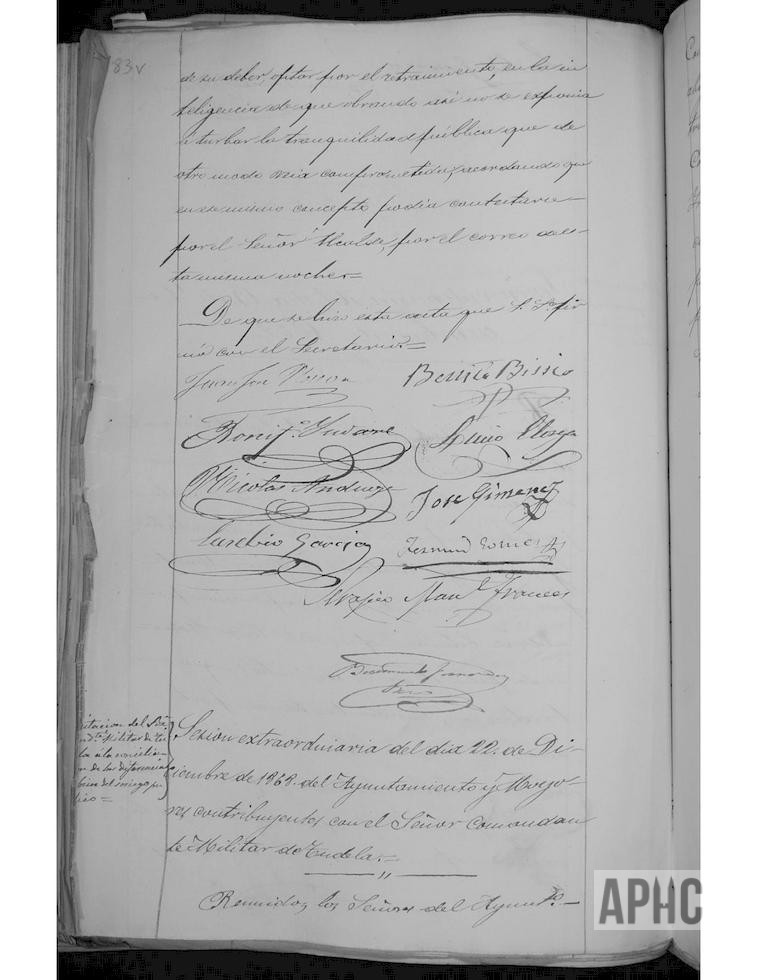 83v
de su deber, optar por el retraimiento, en la in
teligencia de que obrando así no se esponia
a turbar la tranquilidad pública que de
otro modo seria comprometida, acordando que
en ese mismo concepto podia contestarse
por el Señor Alcalde, por el correo de es-
ta misma noche=
De que se hizo esta acta que S. S. fir
mó con el Secretario.=
Juan José
Benito
Bonif.º
Nicolas Andueza
José Gimenez
Eusebio Garcia
Fermin Gomez
Serapio Man.l Frances
itacion del Sõr
Militar de Tu
la á la concilia-
n de las diferencias
bien del sosiego pu
lico=
Sesion extraordinaria del dia 22. de Di-
ciembre de 1868. del Ayuntamiento y Mayo-
res contribuyentes con el Señor Comandan
te Militar de Tudela.=
Reunidos los Señores del Ayunt.º
APHC